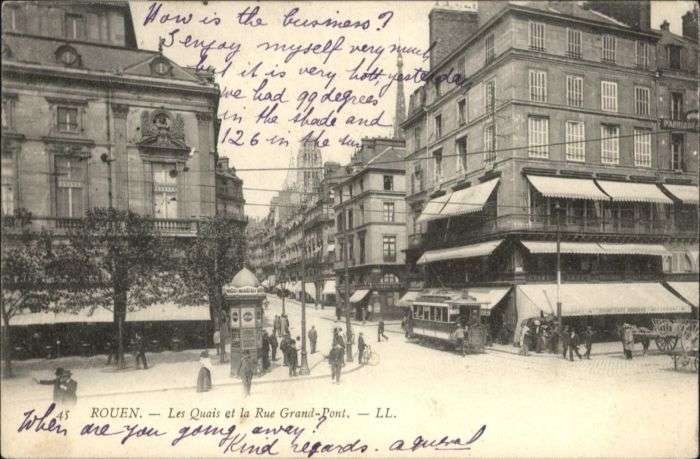 How is the business?
I enjoy myself very much
but it is very hott, yesterday
we had 99 degrees
in the shade and
126 in the sun
45 ROUEN. — Les Quais et la Rue Grand-Pont. — LL.
When are you going away?
Kind regards.